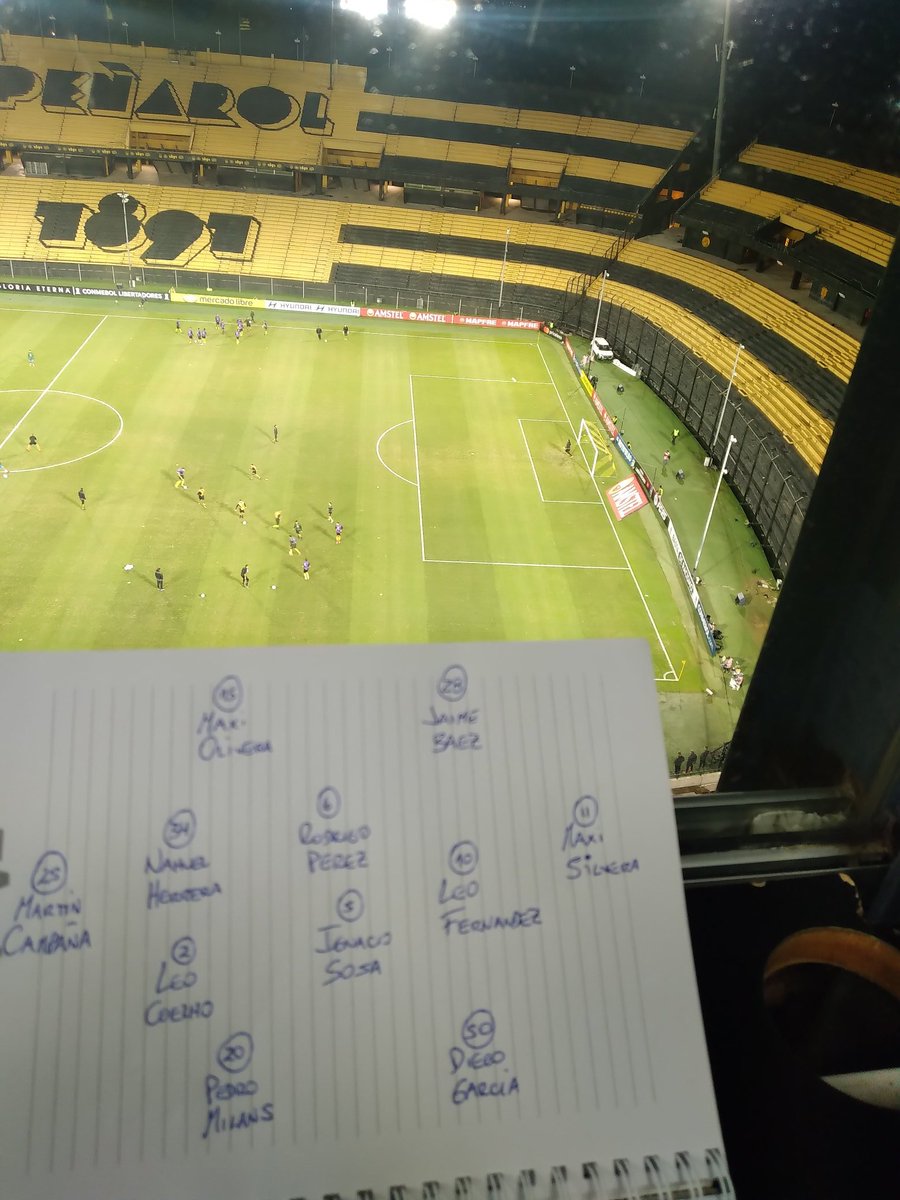 PEÑAROL
1891
GLORIA ETERNA
CONMEBOL LIBERTADORES
mercado libre
HYUNDAI
HYUNDAI
AMSTEL
AMSTEL
MAPFRE
MAPFRE
AMSTEL
15
MAXI
OLIVERA
28
JAIME
BAEZ
34
NAHUEL
HERRERA
6
RODRIGO
PEREZ
11
MAXI
SILVERA
25
MARTIN
CAMPAÑA
10
LEO
FERNANDEZ
5
IGNACIO
SOSA
2
LEO
COELHO
20
PEDRO
MILANS
50
DIEGO
GARCIA